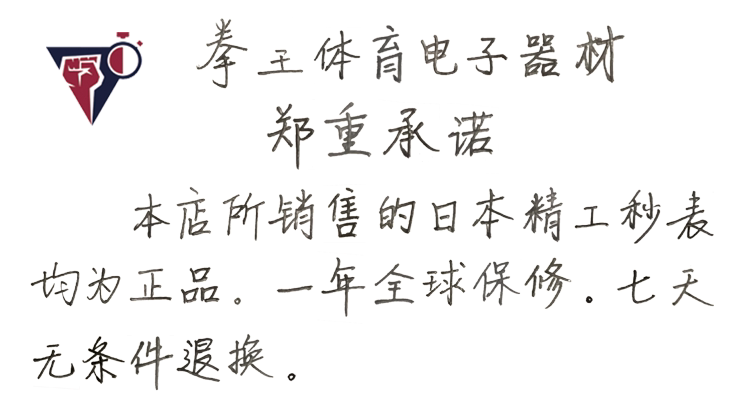 拳王体育电子器材
郑重承诺
本店所销售的日本精工秒表
均为正品。一年全球保修。七天
无条件退换。